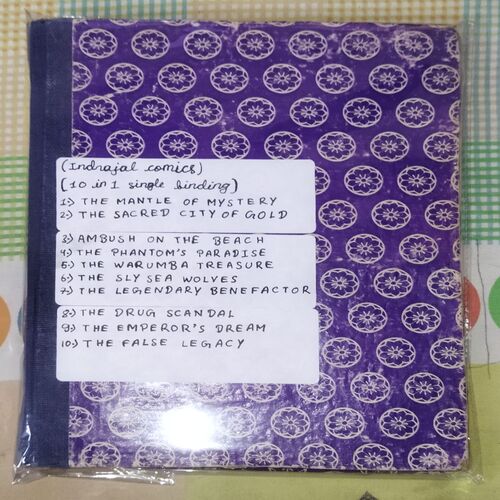 (Indrajal comics)
[10 in 1 single binding]
1.) THE MANTLE OF MYSTERY
2.) THE SACRED CITY OF GOLD
3.) AMBUSH ON THE BEACH
4.) THE PHANTOM'S PARADISE
5.) THE WARUMBA TREASURE
6.) THE SLY SEA WOLVES
7.) THE LEGENDARY BENEFACTOR
8.) THE DRUG SCANDAL
9.) THE EMPEROR'S DREAM
10.) THE FALSE LEGACY